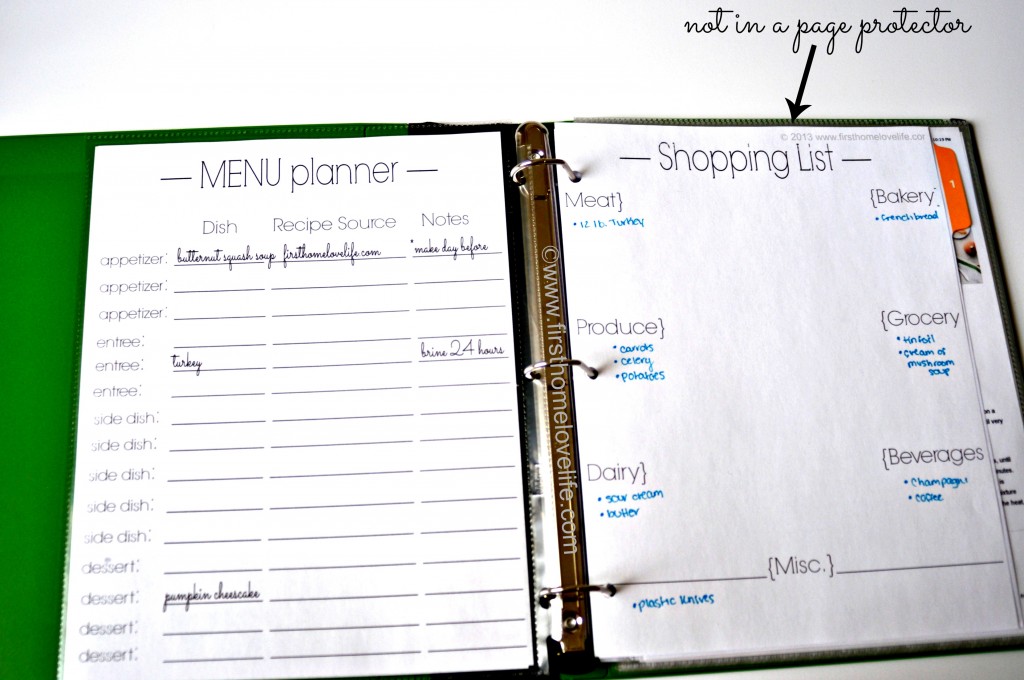 not in a page protector
— MENU planner —
Dish Recipe Source Notes
appetizer: butternut squash soup firsthomelovelife.com *make day before
appetizer:
appetizer:
entree:
entree: turkey brine 24 hours
entree:
side dish:
side dish:
side dish:
side dish:
side dish:
dessert:
dessert: pumpkin cheescake
dessert:
dessert:
©www.firsthomelovelife.com
© 2013 www.firsthomelovelife.com
— Shopping List —
Meat}
• 12 lb. Turkey
{Bakery
• french bread
Produce}
• carrots
• celery
• potatoes
{Grocery
• tinfoil
• cream of
mushroom
soup
Dairy}
• sour cream
• butter
{Beverages
• champagne
• coffee
{Misc.}
• plastic knives
1